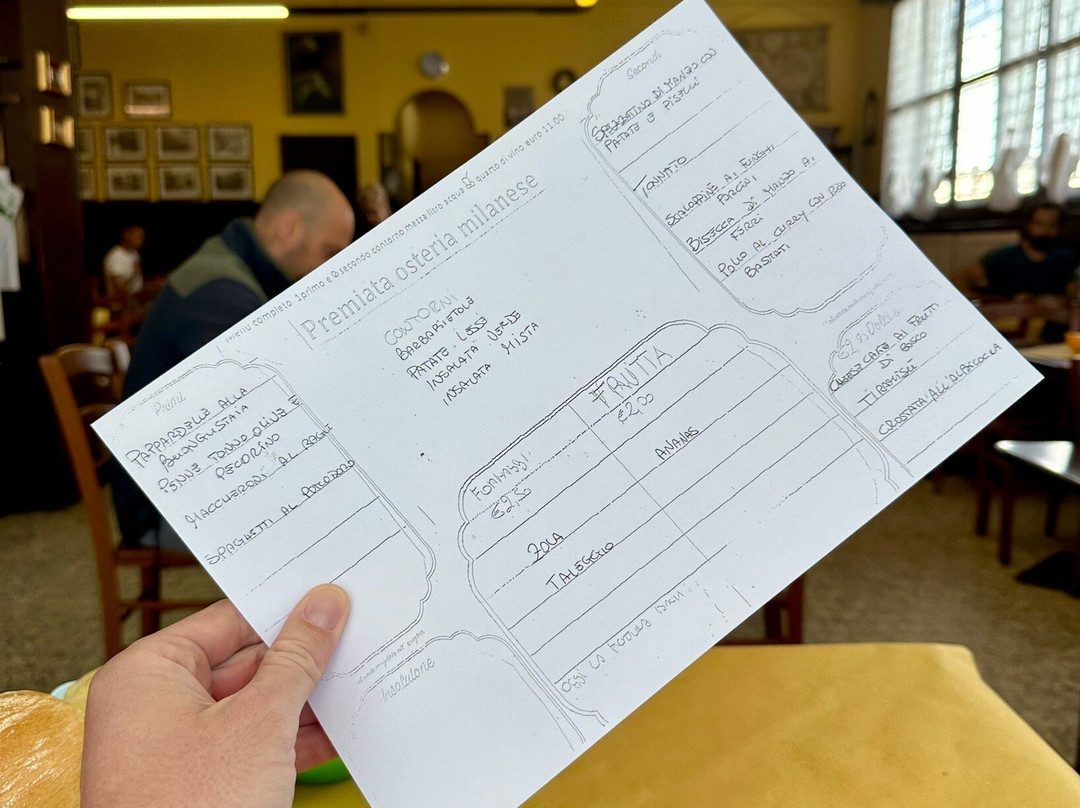 Menu completo 1 primo e 1 secondo contorno mezza litro acqua o quarto di vino euro 11.00
Premiata osteria milanese
Primi
PAPPARDELLE ALLA
BUONGUSTAIA
PENNE TONNO OLIVE E
PECORINO
MACCHERONI AL RAGÙ
SPAGHETTI AL POMODORO
CONTORNI
BARBABIETOLE
PATATE LESSE
INSALATA VERDE
INSALATA MISTA
Secondi
DI MANZO CON
PATATE E PISELLI
TONNATO
SCALOPPINE AI FUNGHI
PORCINI
BISTECCA DI MANZO AI
FERRI
POLLO AL CURRY CON RISO
BASMATI
Dolci
CHEESECAKE AI FRUTTI
DI BOSCO
TIRAMISÙ
CROSTATA ALL'ALBICOCCA
FRUTTA
€2,00
ANANAS
Formaggi
€2,50
ZOLA
TALEGGIO
OGGI LA
Insalatone